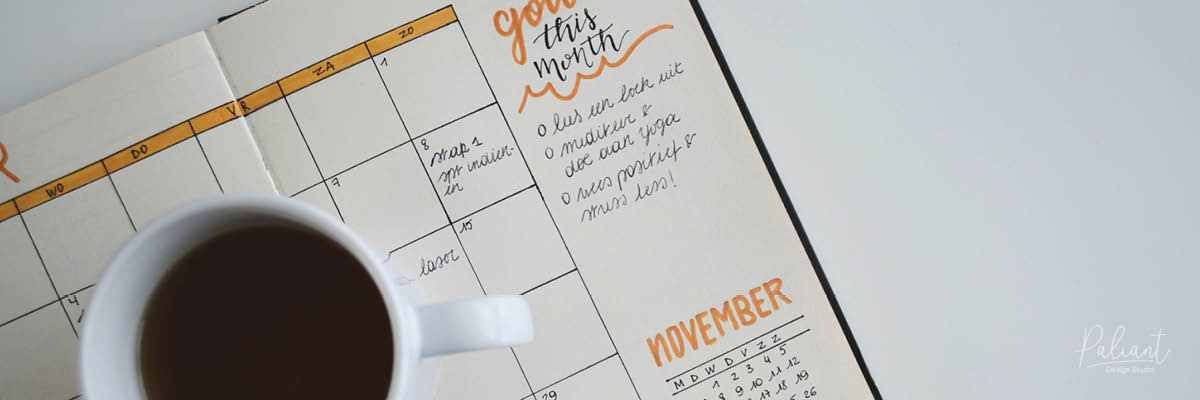 goal
this
month
o lees een boek uit
o mediteer &
doe aan yoga
o wees positief &
stress less!
WO
DO
VR
ZA
ZO
1
8
stap 1
spt indien-
en
7
15
laser
4
29
NOVEMBER
M D W D V Z Z
1 2 3 4 5
8 9 10 11 12
17 18 19
25 26
Paliant
Design Studio